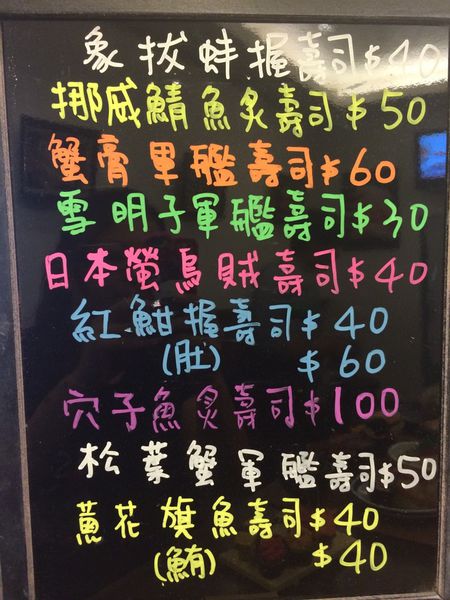 象拔蚌握壽司$40
挪威鯖魚炙壽司$50
蟹膏軍艦壽司$60
雪明子軍艦壽司$30
日本螢烏賊壽司$40
紅魽握壽司$40
(肚) $60
穴子魚炙壽司$100
松葉蟹軍艦壽司$50
蔥花旗魚壽司$40
(鮪) $40